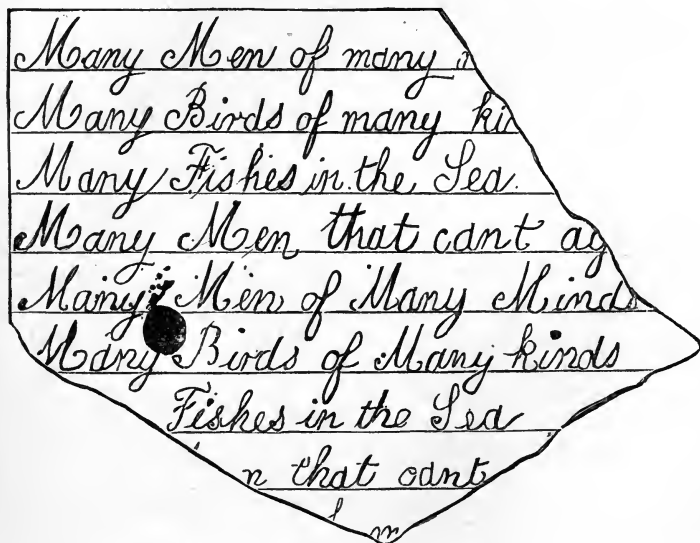 Many Men of many
Many Birds of many kin
Many Fishes in the Sea.
Many Men that cant ag
Many Men of Many Minds
Many Birds of Many kinds
Fishes in the Sea
n that cant